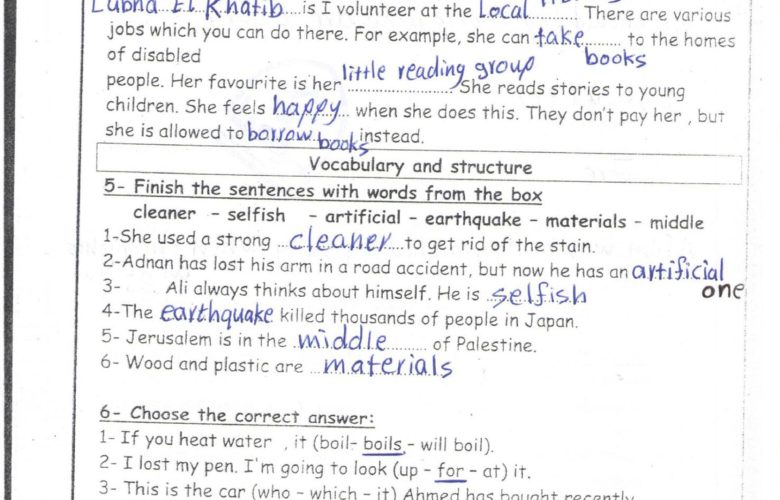 Lubna El Khatib....is I volunteer at the Local............ There are various
jobs which you can do there. For example, she can take......... to the homes
of disabled books
people. Her favourite is her little reading group She reads stories to young
children. She feels happy... when she does this. They don't pay her , but
she is allowed to borrow books instead.
Vocabulary and structure
5- Finish the sentences with words from the box
cleaner - selfish - artificial - earthquake - materials - middle
1-She used a strong ...cleaner....to get rid of the stain.
2-Adnan has lost his arm in a road accident, but now he has an artificial one
3- Ali always thinks about himself. He is ..selfish
4-The earthquake killed thousands of people in Japan.
5- Jerusalem is in the .middle......... of Palestine.
6- Wood and plastic are ...materials
6- Choose the correct answer:
1- If you heat water , it (boil- boils - will boil).
2- I lost my pen. I'm going to look (up - for - at) it.
3- This is the car (who - which - it) Ahmed has bought recently